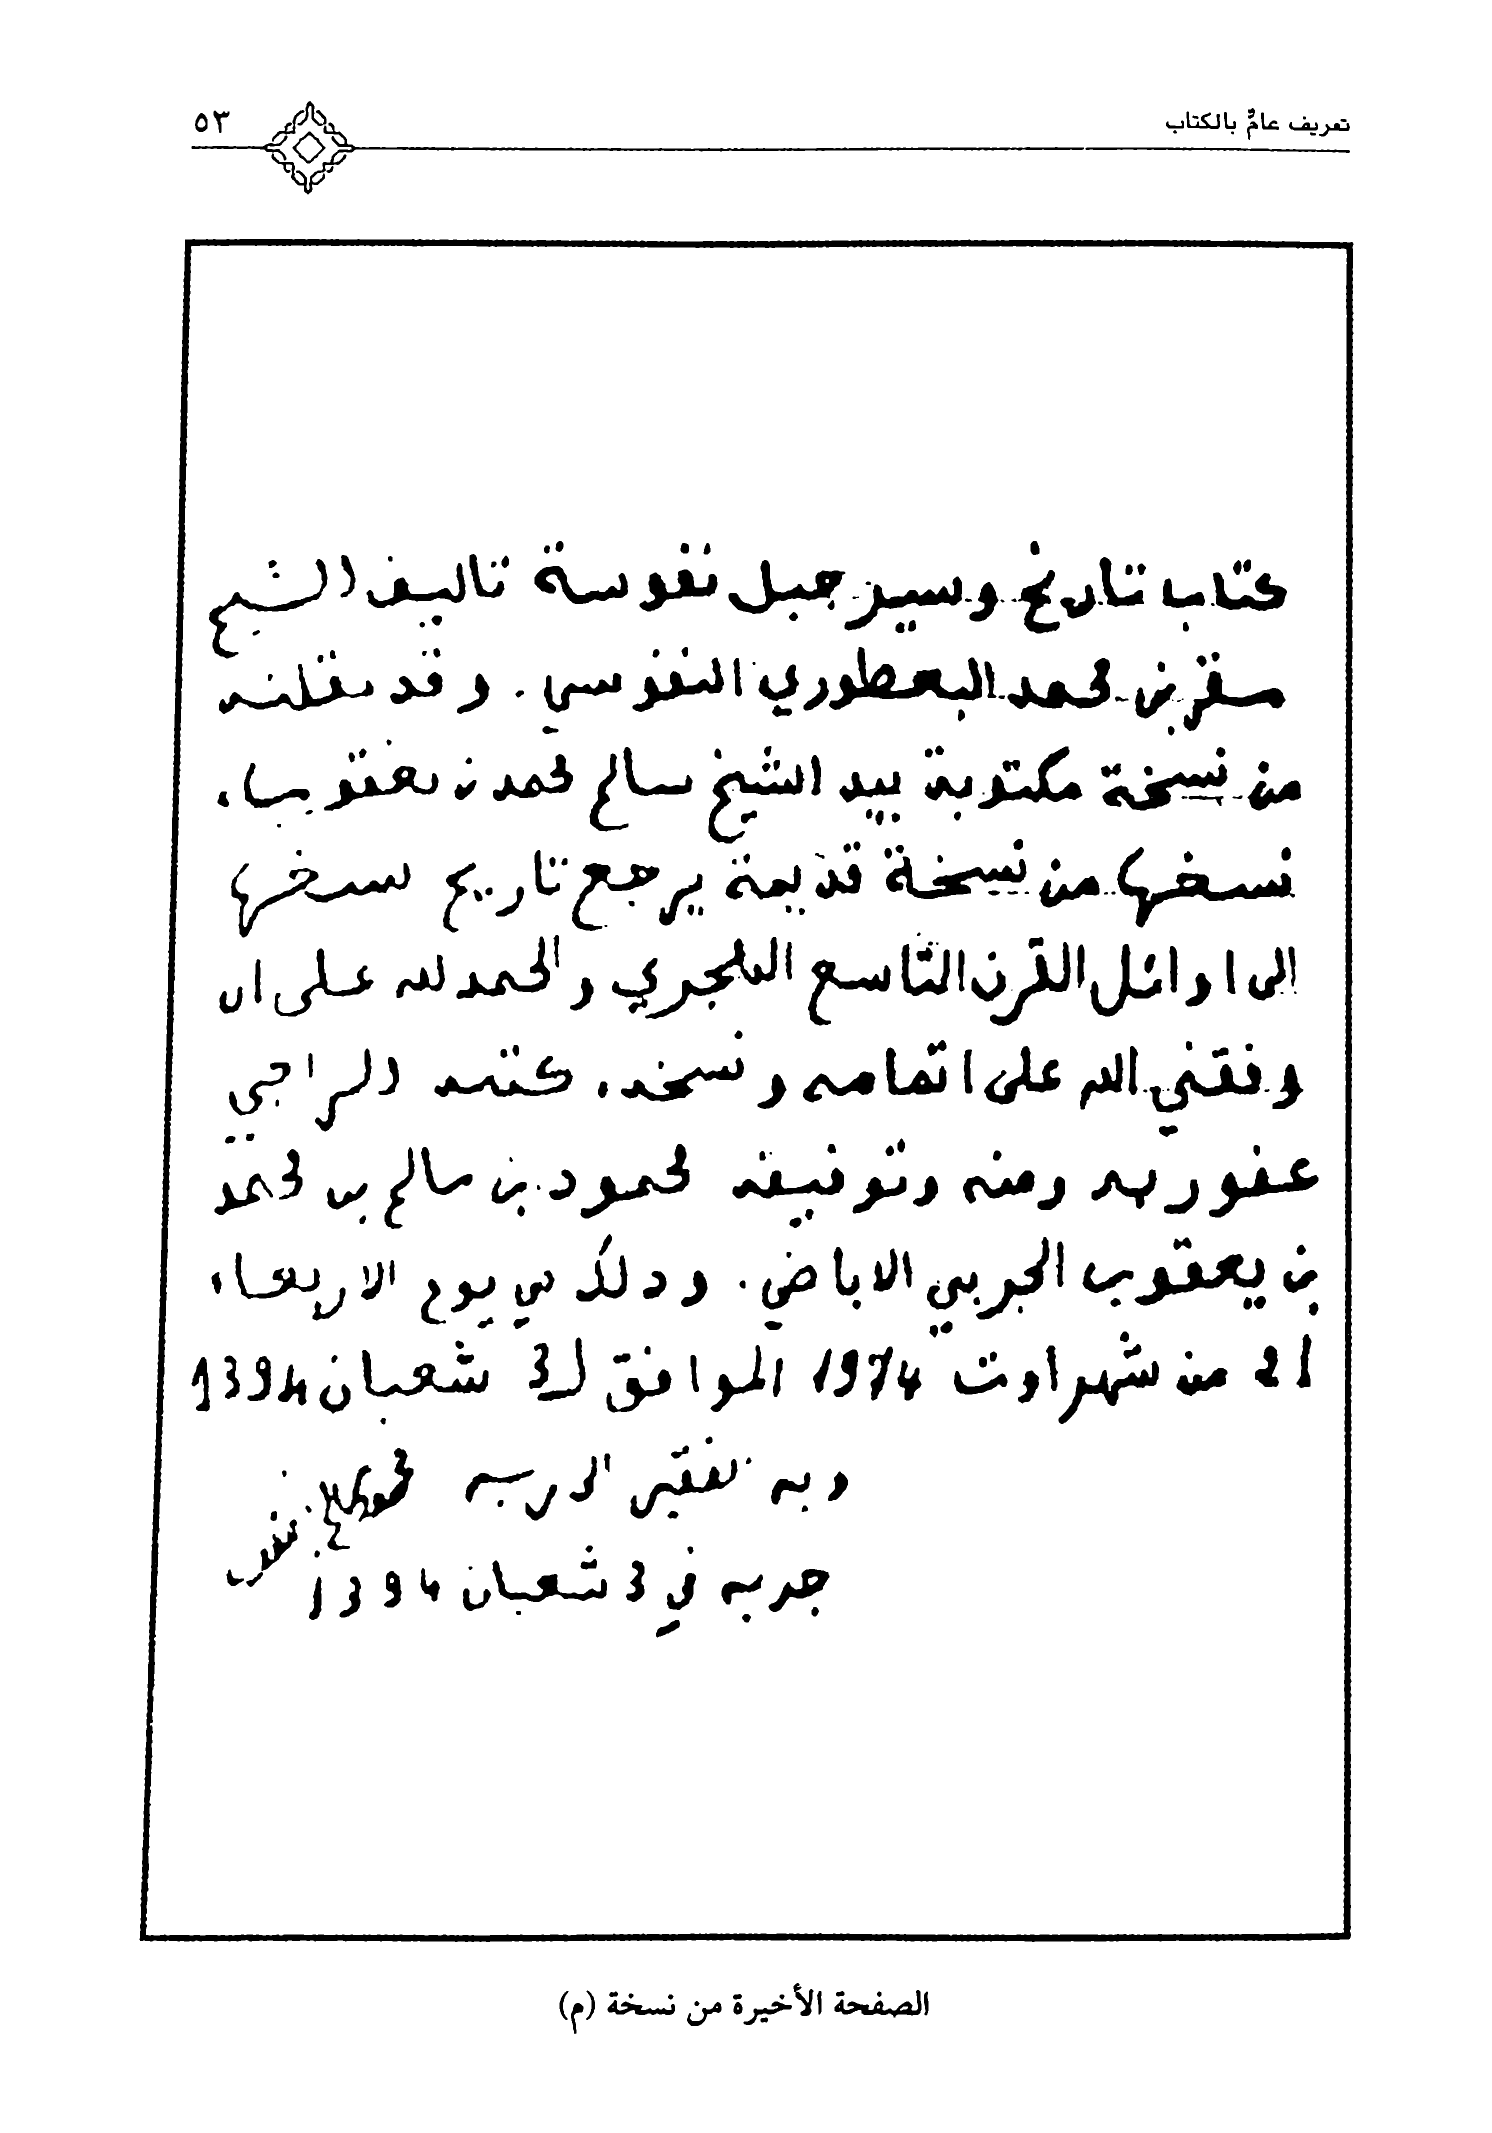 تعريف عامٌّ بالكتاب
٥٣
كتاب تاريخ وسير جبل نفوسة تاليف الشيخ
مقرين محمد البغطوري النفوسي. وقد نقلته
من نسخة مكتوبة بيد الشيخ سالم محمد بن يعقوب،
نسخها من نسخة قديمة يرجع تاريخ نسخها
الى اوائل القرن التاسع الهجري والحمد لله على ان
وفقني الله على اتمامه ونسخه. كتبه الراجي
عفو ربه ومنه وتوفيقه محمود بن سالم بن محمد
بن يعقوب الجربي الاباضي. وذلك في يوم الاربعاء
21 من شهر اوت 1974 الموافق ل 3 شعبان 1394
وبه الفقير الى ربه محمود سالم يعقوب
جربه في 3 شعبان 1394
الصفحة الأخيرة من نسخة (م)